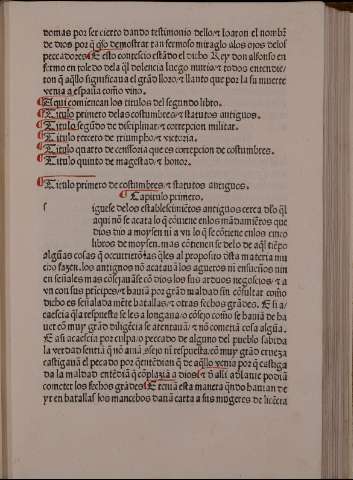 domas por ser cierto dando testimonio dello/ ⁊ loaron el nombre
de dios por q̃ q̃so demostrar tan fermoso miraglo alos ojos delos
peccadores ¶ E esto contescio estãdo el dicho Rey don alfonso en
fermo en toledo dela q̃l dolencia luego murio/ ⁊ todos entendie-
ron q̃ aq̃llo significaua el grãd lloro/ ⁊ llanto que por la su muerte
venia a españa como vino.
¶ Aqui comiencan los titulos del segundo libro.
¶ Titulo primero delas costumbres/ ⁊ statutos antiguos.
¶ Titulo segũdo de disciplina/ ⁊ correpcion militar.
¶ Titulo tercero de triumpho/ ⁊ victoria.
¶ Titulo quarto de censoria que es correpcion de costumbres.
¶ Titulo quinto de magestad/ ⁊ honor.
¶ Titulo primero de costumbres/ ⁊ statutos antiguos.
¶ Capitulo primero.
s iguese delos establescimiẽtos antiguos cerca dlo q̃l
aqui nõ se acata lo q̃ cõuiene enlos mãdamiẽtos que
dios dio a moysen ni a vn lo q̃ se cõtiene enlos cinco
libros de moysen. mas cõtienen se delo de aq̃l tiẽpo
algũas cosas q̃ occurrierõ
cho fazen. los antiguos nõ acatauã los agueros ni ensueños nin
en señales mas cõsejauã se cõ dios los sus arduos negocios/ ⁊ a
vn con sus prĩcipes/ ⁊ hauiã por grãd maldad sin cõsultar como
dicho es señalada mẽte batallas/ ⁊ otras fechos grãdes. E si a/
caescia q̃ la respuesta se les alongaua/ o cõsejo como se hauia de ha
uer cõ muy grãd diligẽcia se atentauã/ ⁊ nõ cometiã cosa algũa.
E asi acaescia por culpa/ o peccado de alguno del pueblo sabida
la verdad sentiã q̃ nõ auiã cõsejo ni respuesta. cõ muy grãd crueza
castigauã el pecado por q̃ entẽdian q̃ de aq̃llo venia por q̃ castiga
da la maldad entẽdiã q̃ cõplaziã a dios/ ⁊ dẽ alli adelante podiã
cometer los fechos grãdes ¶ E teniã esta manera q̃ndo hauian de
yr en batallas los mancebos dauã carta a sus mugeres de licẽcia